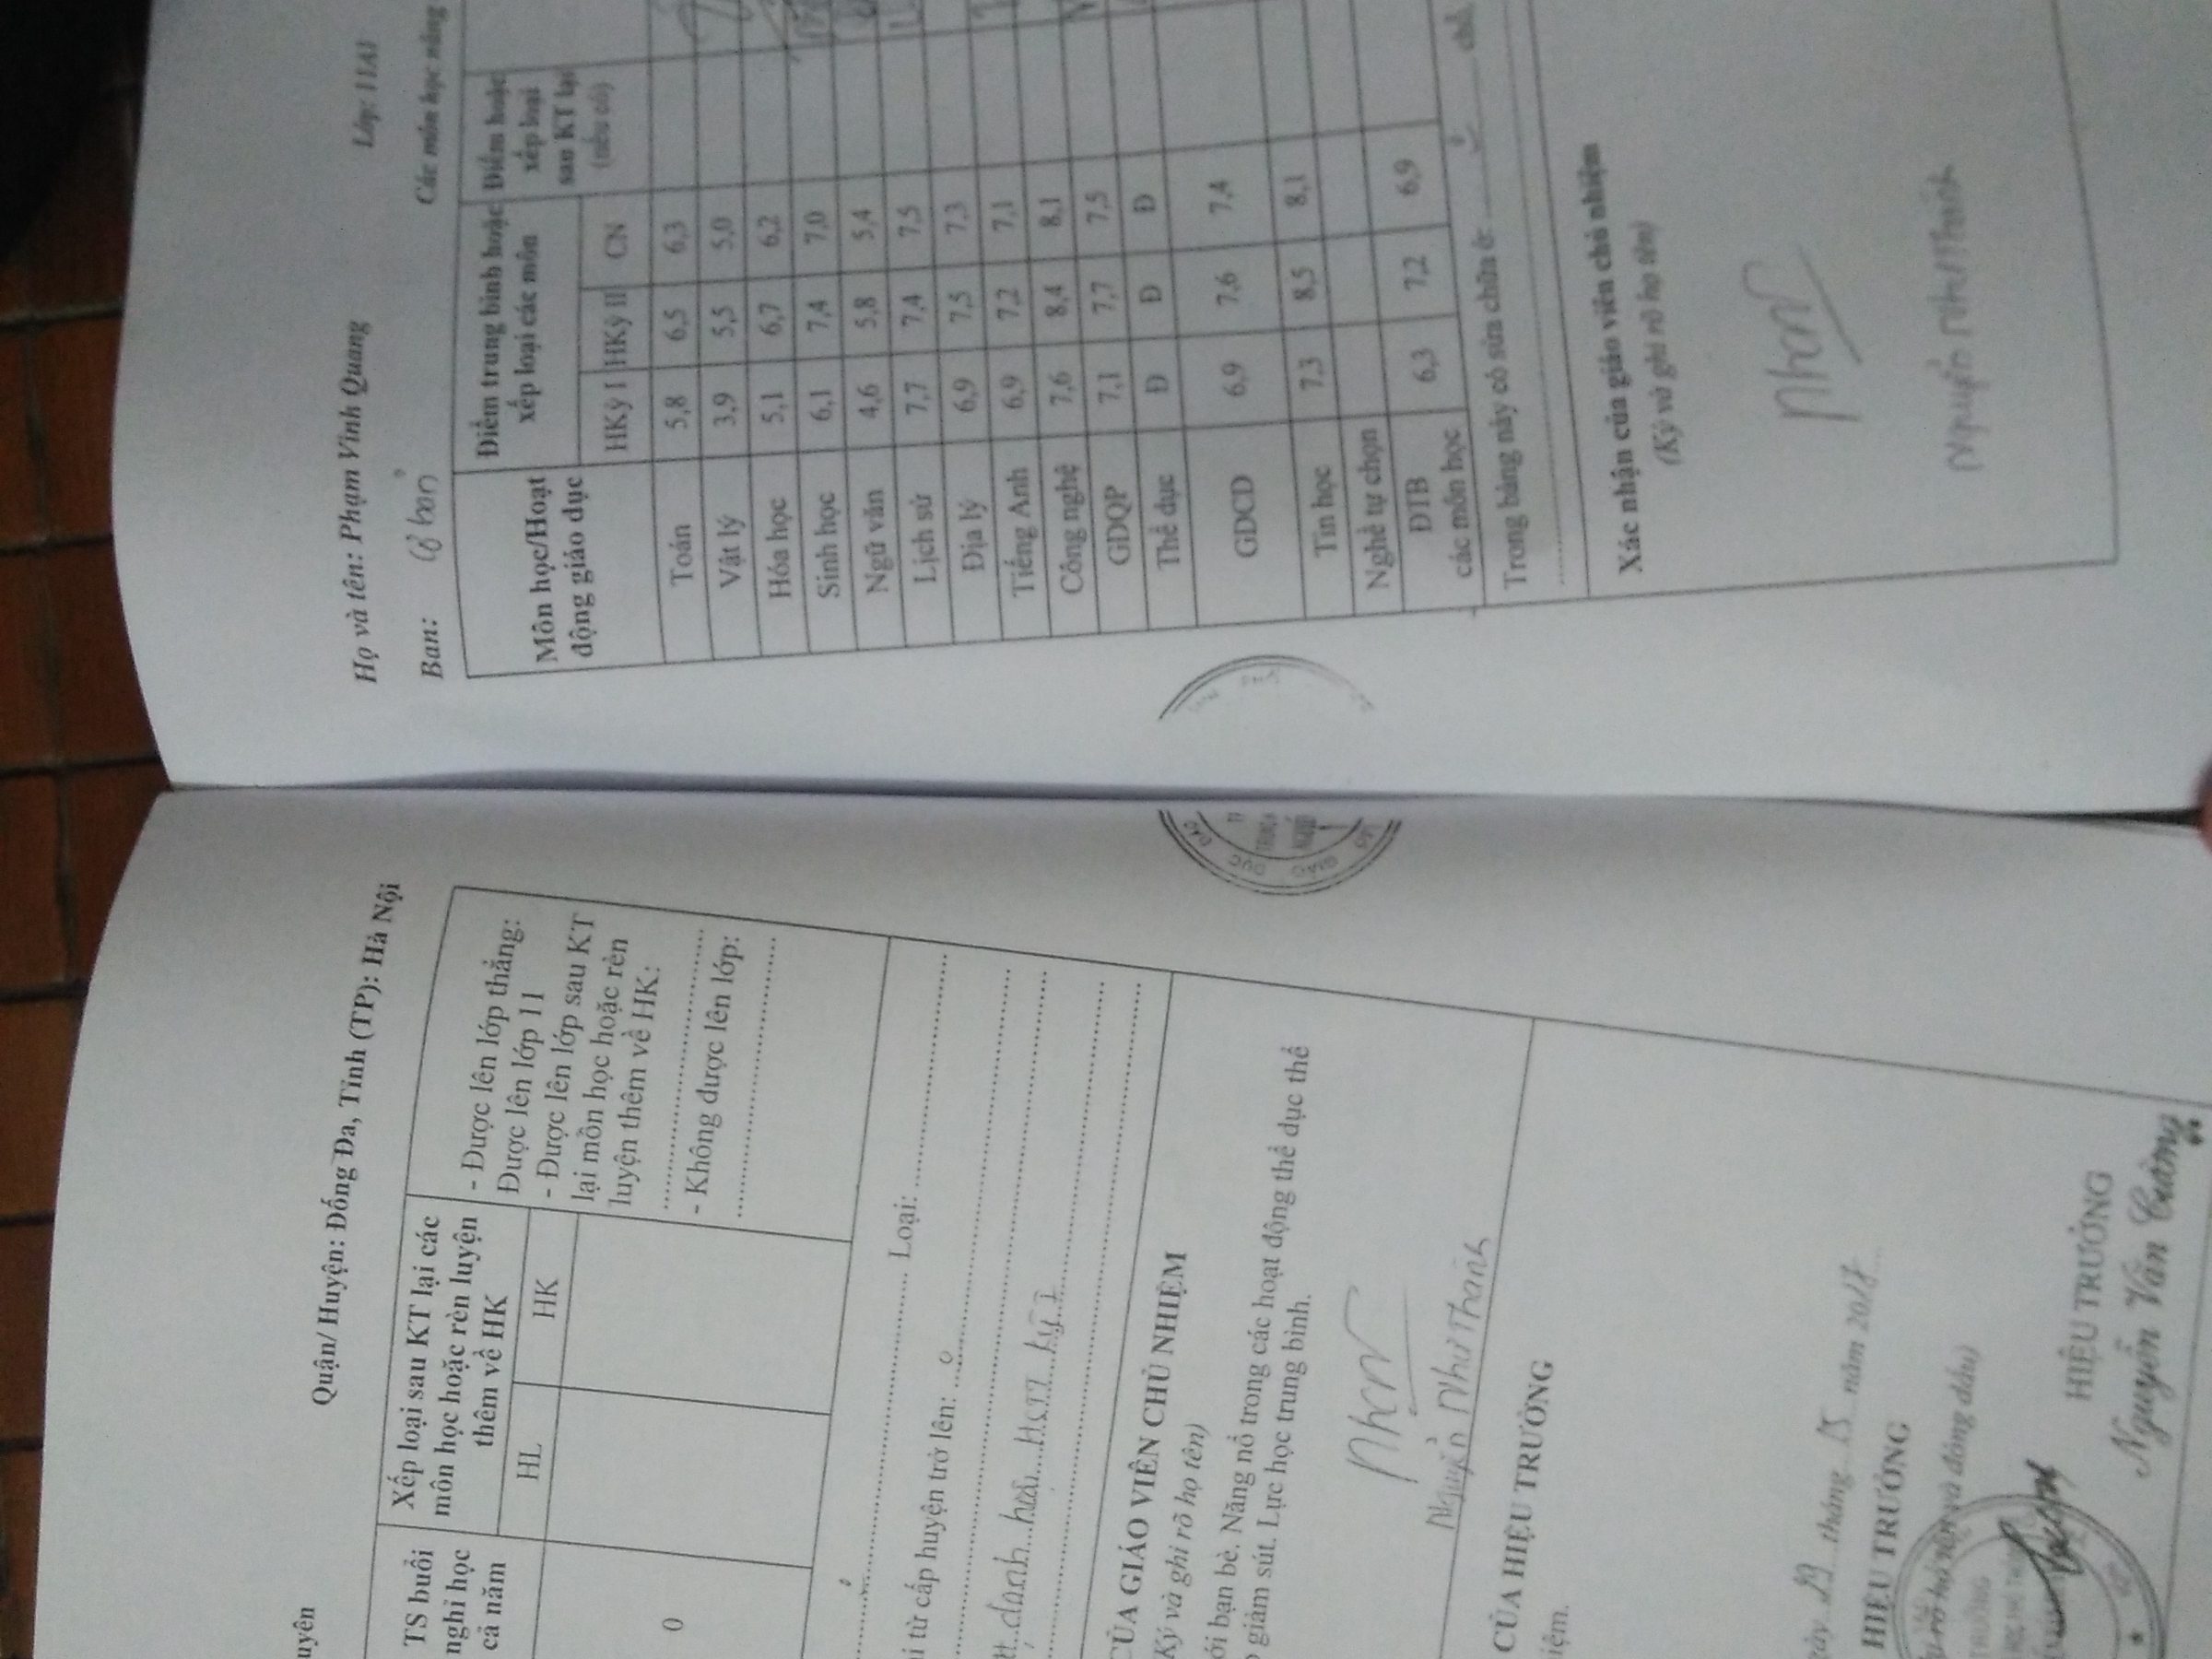 uyên
Quận/ Huyện: Đống Đa, Tỉnh (TP): Hà Nội
TS buổi nghỉ học cả năm
Xếp loại sau KT lại các môn học hoặc rèn luyện thêm về HK
HL HK
0
- Được lên lớp thẳng:
Được lên lớp 11
- Được lên lớp sau KT
lại môn học hoặc rèn
luyện thêm về HK:
- Không được lên lớp:
Loại:
i từ cấp huyện trở lên:
danh hiệu HSTT kỳ I
CỦA GIÁO VIÊN CHỦ NHIỆM
Ký và ghi rõ họ tên)
ới bạn bè. Năng nổ trong các hoạt động thể dục thể
giảm sút. Lực học trung bình.
Nguyễn Như Thành
CỦA HIỆU TRƯỞNG
iệm.
tháng năm
HIỆU TRƯỞNG
rõ họ tên và đóng dấu)
HIỆU TRƯỞNG
Nguyễn Văn Cường
Họ và tên: Phạm Vinh Quang Lớp: 11A1
Ban: Cơ bản Các môn học nâng
Môn học/Hoạt động giáo dục
Điểm trung bình hoặc xếp loại các môn
Điểm hoặc xếp loại sau KT lại (nếu có)
HKỳ I HKỳ II CN
Toán 5,8 6,5 6,3
Vật lý 3,9 5,5 5,0
Hóa học 5,1 6,7 6,2
Sinh học 6,1 7,4 7,0
Ngữ văn 4,6 5,8 5,4
Lịch sử 7,7 7,4 7,5
Địa lý 6,9 7,5 7,3
Tiếng Anh 6,9 7,2 7,1
Công nghệ 7,6 8,4 8,1
GDQP 7,1 7,7 7,5
Thể dục Đ Đ Đ
GDCD 6,9 7,6 7,4
Tin học 7,3 8,5 8,1
Nghề tự chọn
ĐTB các môn học 6,3 7,2 6,9
Trong bảng này có sửa chữa ở: chỗ,
Xác nhận của giáo viên chủ nhiệm
(Ký và ghi rõ họ tên)
Nguyễn Như Thành